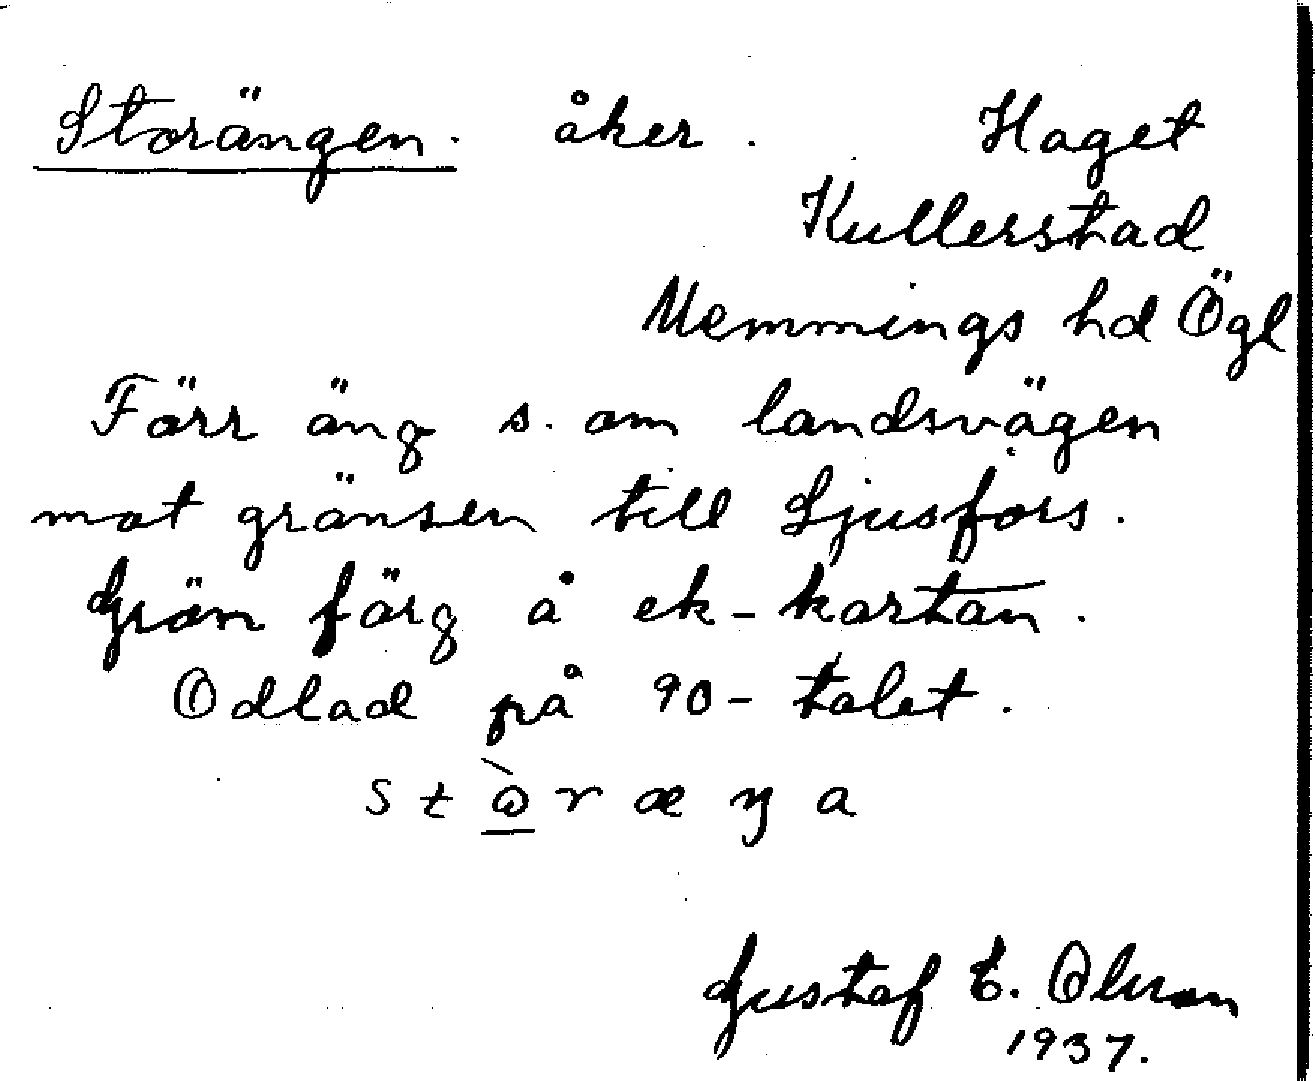 Storängen. åker. Haget
Kullerstad
Memmings hd Ögl
Förr äng s. om landsvägen
mot gränsen till Ljusfors.
Grön färg å ek-kartan.
Odlad på 90-talet.
stòræŋa
Gustaf E. Olsson
1937.